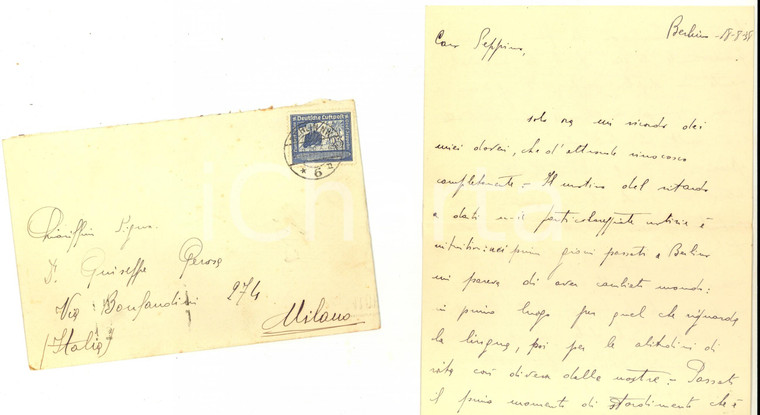 Deutsche Luftpost
Chiariss.mo Signor
D. Giuseppe Perosa
Via Bonfandini 274
Milano
(Italia)
iCharta
Berlino - 18-8-38
Caro Peppino,
solo ora mi ricordo dei
miei doveri, che d'altronde riconosco
completamente - Il motivo del ritardo
a darti mie particolareggiate notizie è
nei primi giorni passati a Berlino
mi pareva di aver cambiato mondo:
in primo luogo per quel che riguarda
la lingua, poi per le abitudini di
vita così diversa dalle nostre - Passati
il primo momento di stordimento che è